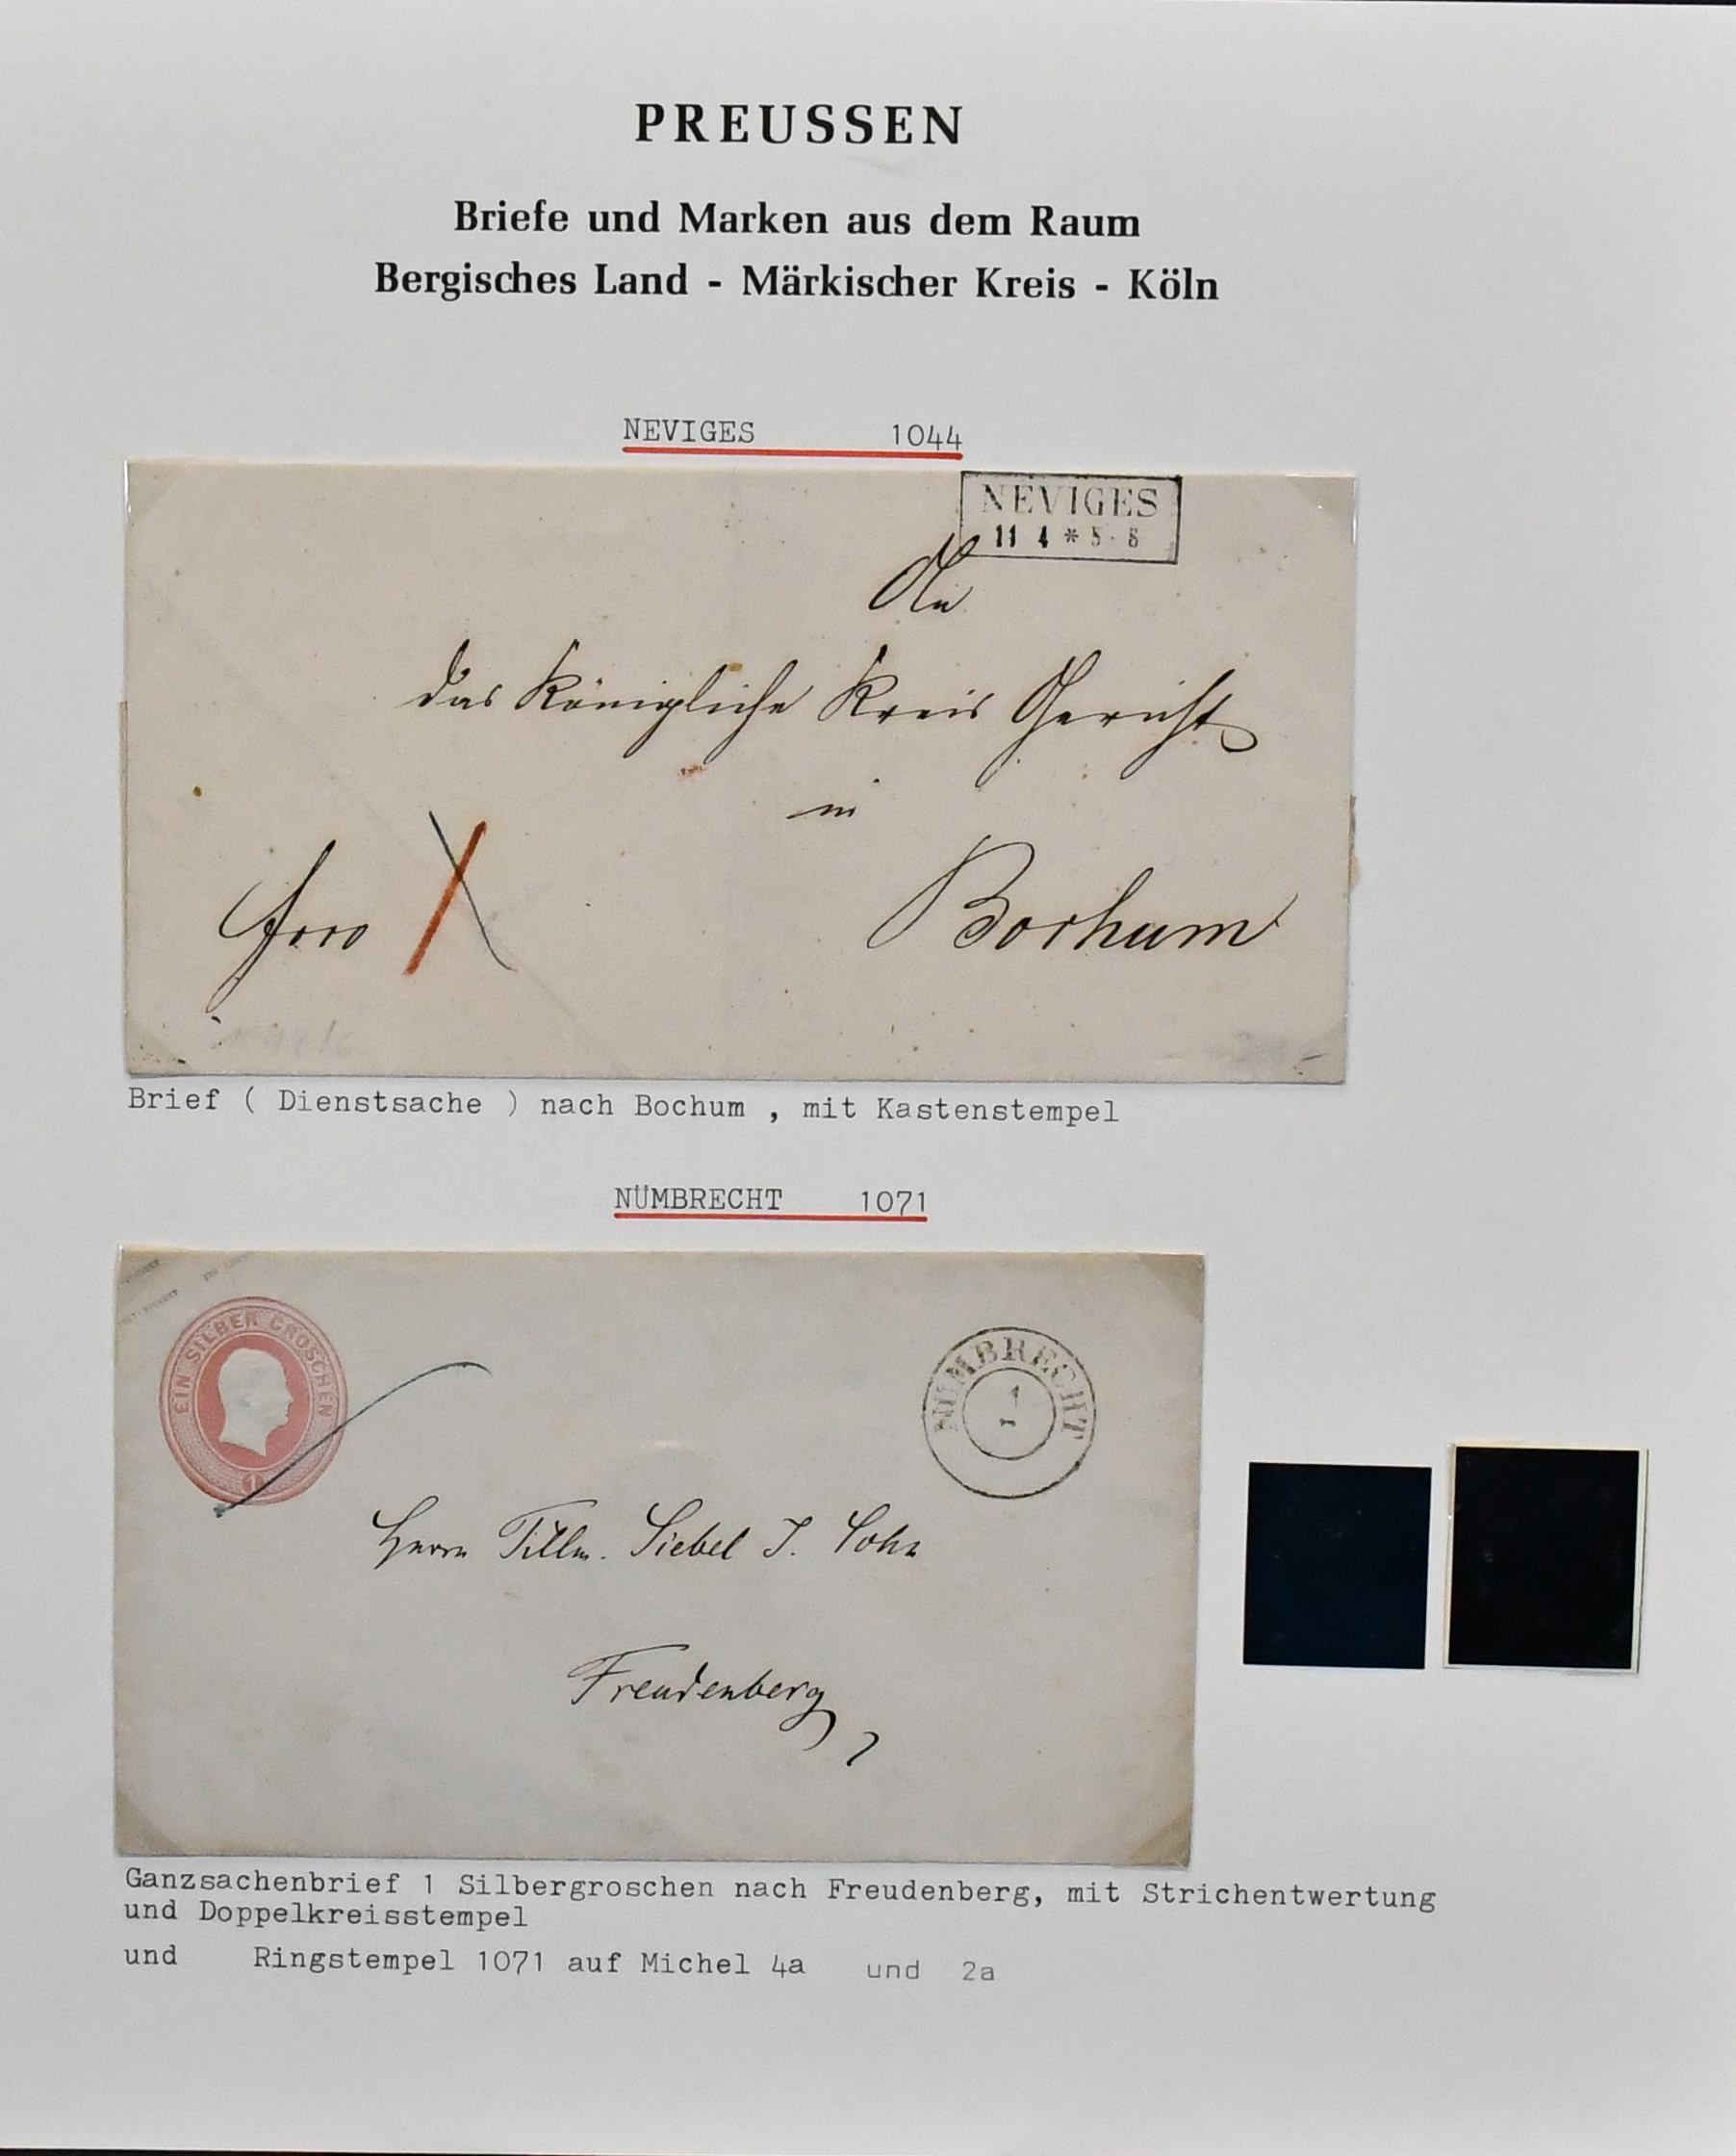 PREUSSEN
Briefe und Marken aus dem Raum
Bergisches Land - Märkischer Kreis - Köln
NEVIGES 1044
NEVIGES
11 4 * 5-8
An
das Königliche Kreis Gericht
in
Bochum
Brief ( Dienstsache ) nach Bochum , mit Kastenstempel
NÜMBRECHT 1071
EIN SILBER GROSCHEN
1
NÜMBRECHT
1
Herrn Tillm. Siebel J. Sohn
Freudenberg
Ganzsachenbrief 1 Silbergroschen nach Freudenberg, mit Strichentwertung
und Doppelkreisstempel
und Ringstempel 1071 auf Michel 4a und 2a